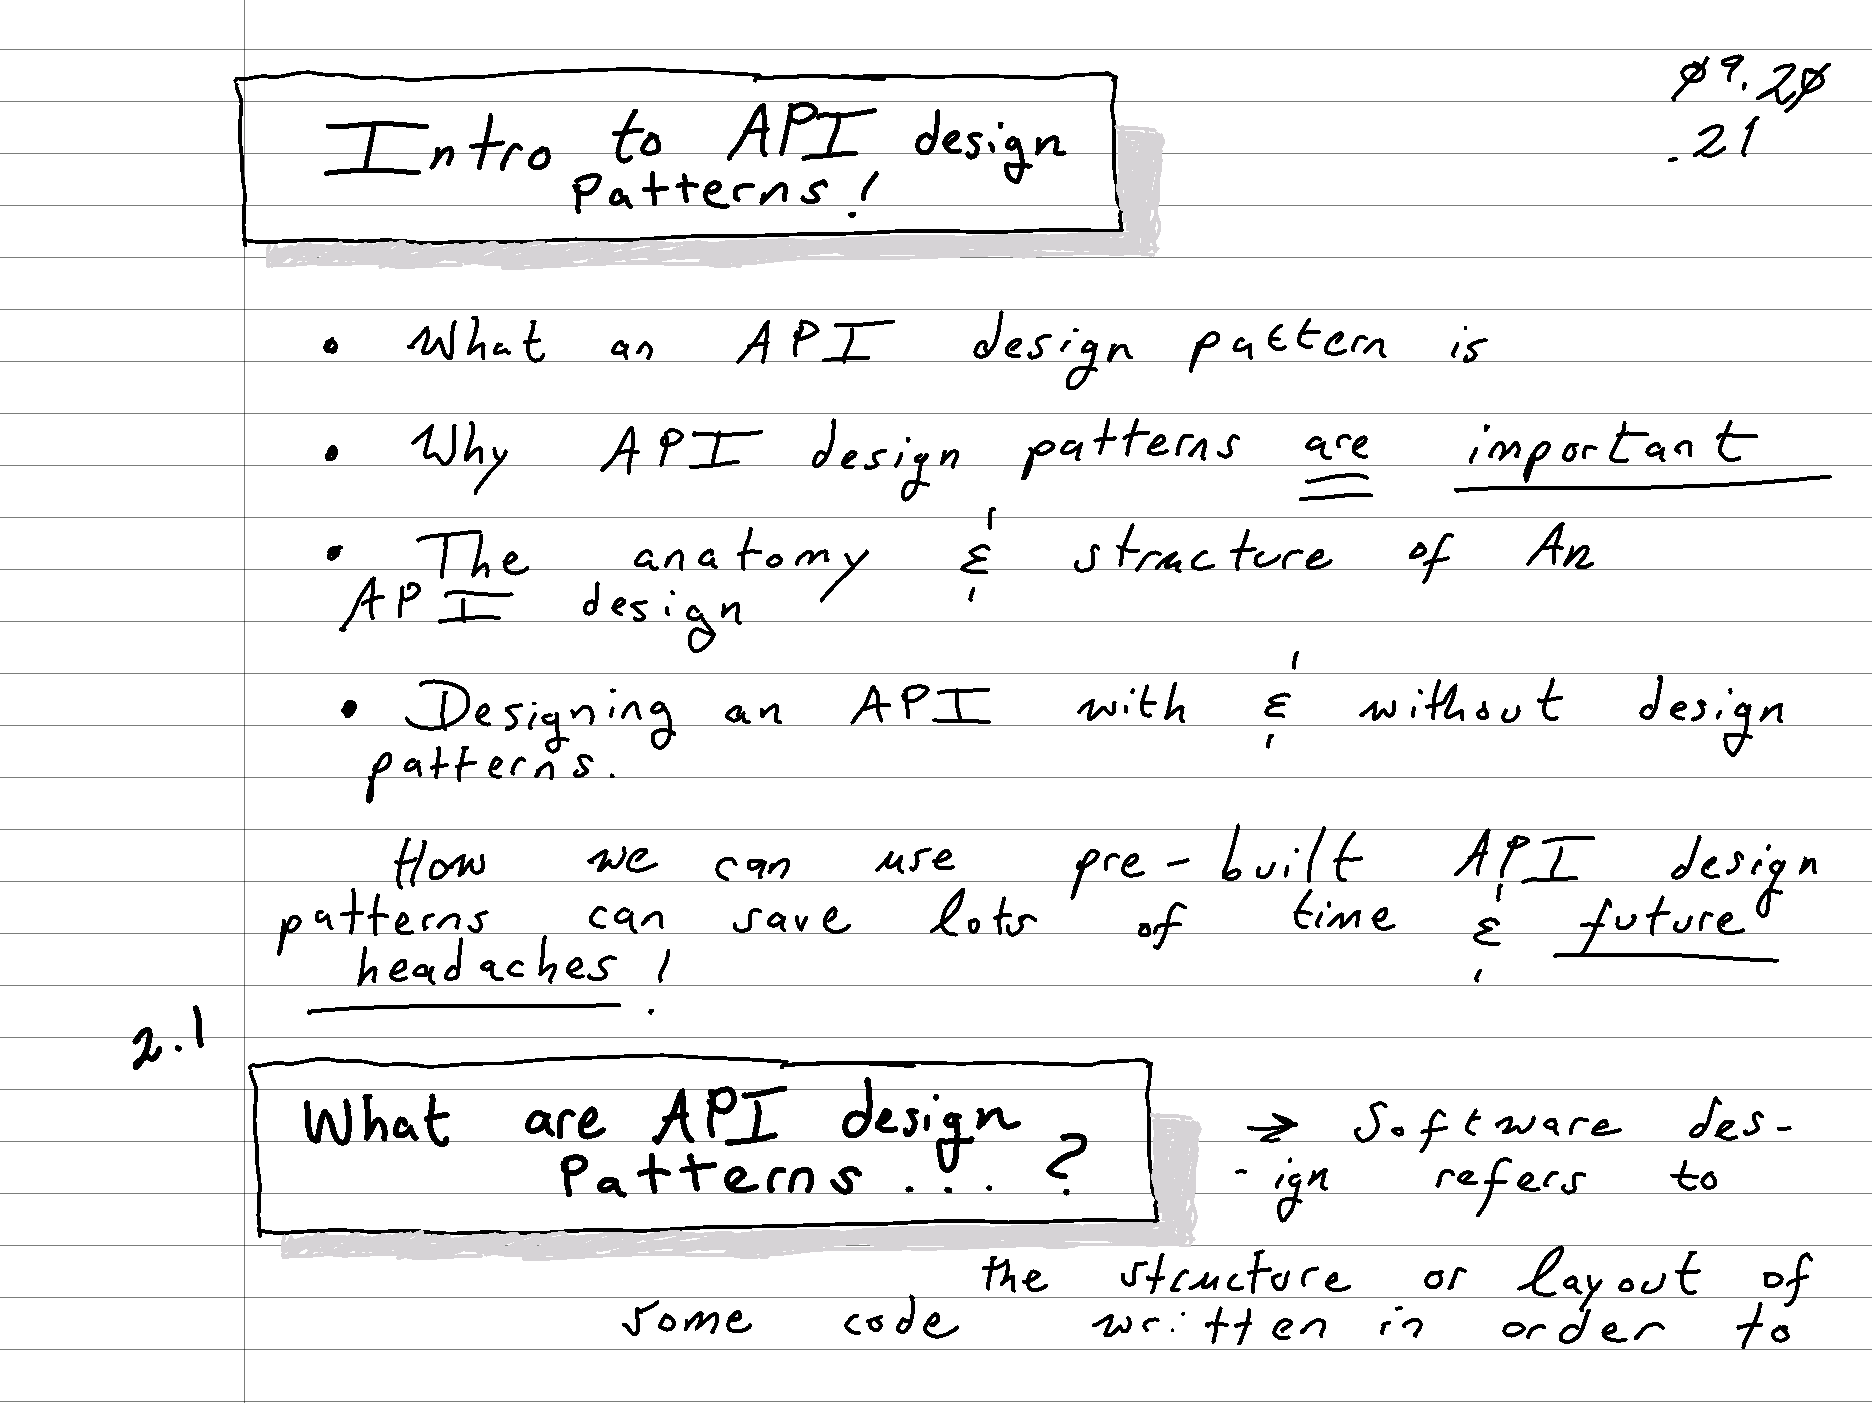 Intro to API design
Patterns!
ø9.2ø
.21
• What an API design pattern is
• Why API design patterns are important
• The anatomy & structure of An
API design
• Designing an API with & without design
patterns.
How we can use pre-built API design
patterns can save lots of time & future
headaches!
2.1
What are API design
Patterns...?
→ Software des-
-ign refers to
the structure or layout of
some code written in order to